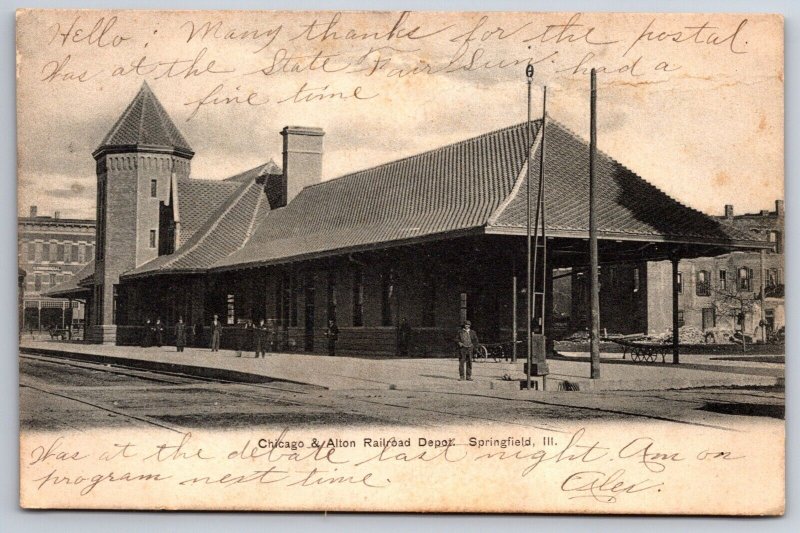 Hello; Many thanks for the postal.
Was at the State Fair Sun. had a
fine time
COMMERCIAL
Chicago & Alton Railroad Depot. Springfield, Ill.
Was at the debate last night. Am on
program next time. Alex.